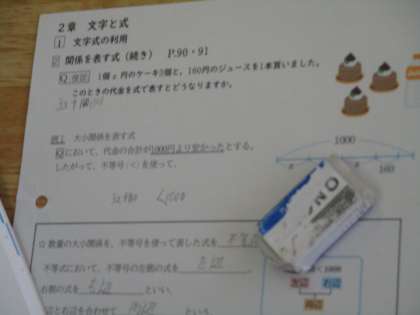 2章 文字と式
1 文字式の利用
関係を表す式(続き) P.90・91
Q 1個x円のケーキ3個と,160円のジュースを1本買いました。
このときの代金を式で表すとどうなりますか。
3x+160
例1 大小関係を表す式
Qにおいて,代金の合計が1000円より安かったとする。
したがって,不等号(<)を使って,
1000
x
160
3x+160 <1000
☆ 数量の大小関係を,不等号を使って表した式を
不等式において,不等号の左側の式を 左辺
右側の式を 右辺 といい,
辺と右辺を合わせて 両辺 という
<1000
左辺 右辺
両辺